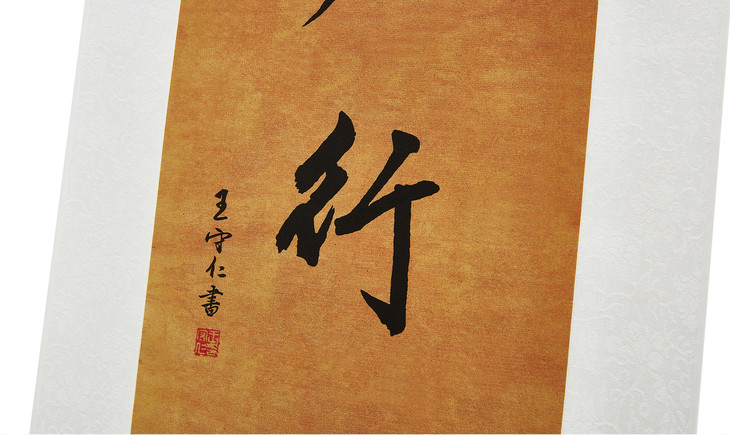 行
王守仁書